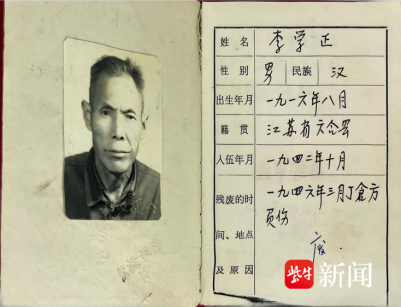 姓名 李学正
性别 男 民族 汉
出生年月 一九一六年八月
籍贯 江苏省六合县
入伍年月 一九四二年十月
残废的时
间、地点
及原因
一九四六年三月丁仓方
负伤
紫牛 新闻